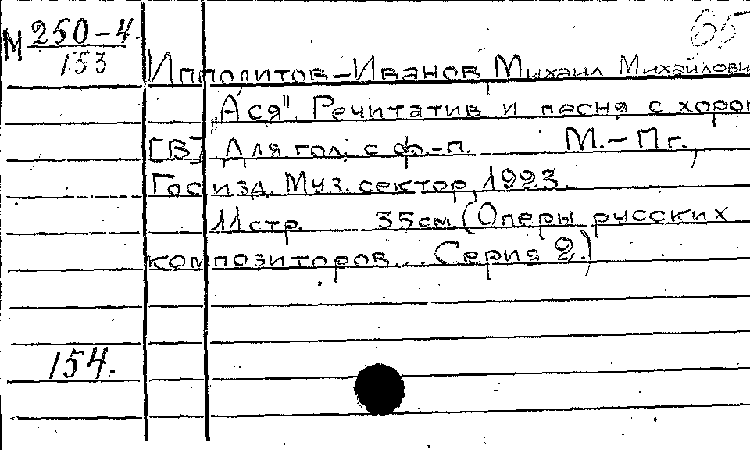 М 250-4
153
65
Ипполитов-Иванов, Михаил Михайлови
"Ася". Речитатив и песня с хоро
[В] Для гол. с ф.-п. М.-Пг.,
Госизд. Муз. сектор, 1923.
11 стр. 35 см (Оперы русских
композиторов... Серия 2.)
154.